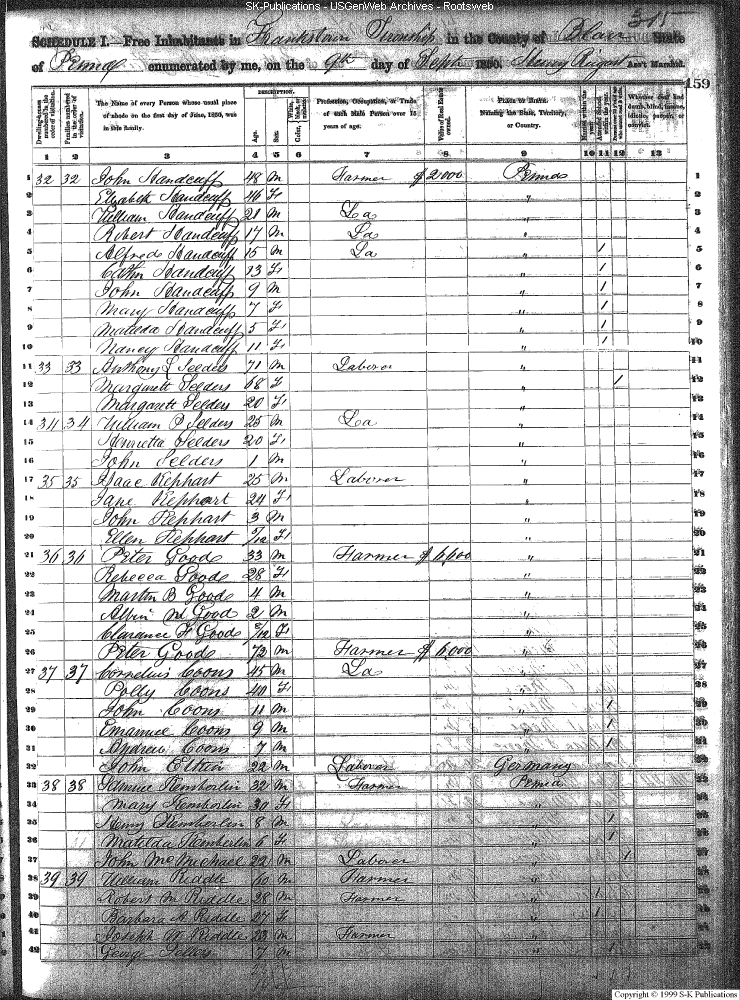 SK-Publications - USGenWeb Archives - Rootsweb
315
SCHEDULE I.—Free Inhabitants in Frankstown Township in the County of Blair State
of Penna enumerated by me, on the 9th day of Sept 1850. Henry Ass't Marshal.
159
DESCRIPTION.
Dwelling-houses numbered in the order of visitation. Families numbered in the order of visitation. The Name of every Person whose usual place of abode on the first day of June, 1850, was in this family. Age. Sex. Color, White, black, or mulatto. Profession, Occupation, or Trade of each Male Person over 15 years of age. Value of Real Estate owned. Place of Birth. Naming the State, Territory, or Country. Married within the year. Attended School within the year. Whether deaf and dumb, blind, insane, idiotic, pauper, or convict.
1 2 3 4 5 6 7 8 9 10 11 12 13
1 32 32 John Handcuff 48 M Farmer $2000 Penna 1
2 Elizabeth Handcuff 46 F " 2
3 William Handcuff 21 M La " 3
4 Robert Handcuff 17 M La " 4
5 Alfred Handcuff 15 M La " / 5
6 Cathn Handcuff 13 F " / 6
7 John Handcuff 9 M " / 7
8 Mary Handcuff 7 F " / 8
9 Matilda Handcuff 5 F " / 9
10 Nancy Handcuff 11 F " / 10
11 33 33 Anthony L Selders 71 M Laborer " 11
12 Margarett Selders 68 F " / 12
13 Margarett Selders 20 F " 13
14 34 34 William P Selders 25 M La " 14
15 Henrietta Selders 20 F " 15
16 John Selders 1 M " 16
17 35 35 Isaac Rephart 25 M Laborer " 17
18 Jane Rephart 24 F " 18
19 John Rephart 3 M " 19
20 Ellen Rephart /12 F " 20
21 36 36 Peter Good 33 M Farmer $6,600 " 21
22 Rebecca Good 28 F " 22
23 Martin B Good 4 M " 23
24 M Good 2 M " 24
25 Clarance F Good /12 F " 25
26 Peter Good 73 M Farmer $6,000 " 26
27 37 37 Cornelius Coons 45 M La " 27
28 Polly Coons 40 F " 28
29 John Coons 11 M " / 29
30 Emanuel Coons 9 M " / 30
31 Andrew Coons 7 M " / 31
32 John 22 M Laborer Germany 32
33 38 38 Samuel Kemberlin 32 M Farmer Penna 33
34 Mary Kemberlin 30 F " 34
35 Henry Kemberlin 8 M " / 35
36 Matilda Kemberlin 6 F " / 36
37 John McMichael 22 M Laborer " / 37
38 39 39 William Riddle 60 M Farmer " 38
39 Robert M Riddle 38 M Farmer " / 39
40 Barbara A Riddle 27 F " / 40
41 Joseph W Riddle 23 M Farmer " 41
42 George 7 M " / 42
Copyright © 1999 S-K Publications